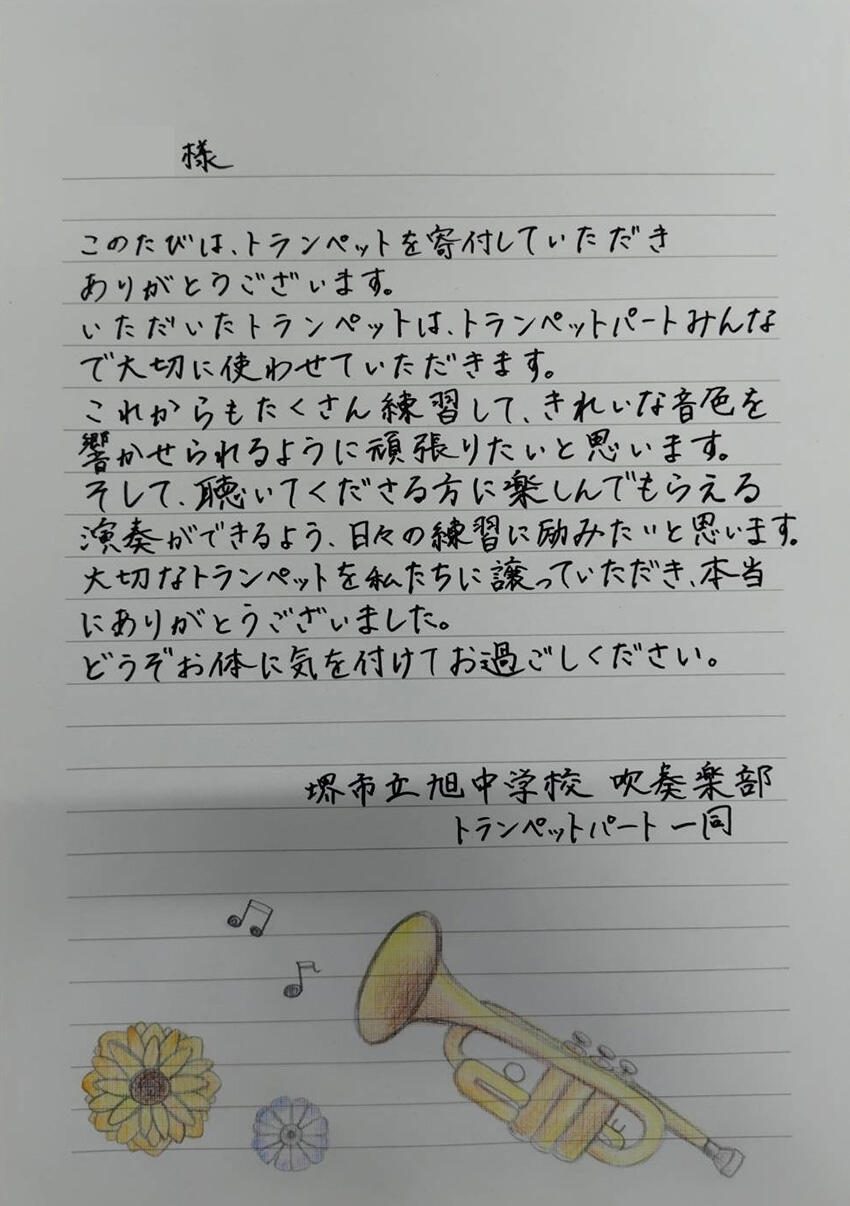 様
このたびは、トランペットを寄付していただき
ありがとうございます。
いただいたトランペットは、トランペットパートみんな
で大切に使わせていただきます。
これからもたくさん練習して、きれいな音色を
響かせられるように頑張りたいと思います。
そして、聴いてくださる方に楽しんでもらえる
演奏ができるよう、日々の練習に励みたいと思います。
大切なトランペットを私たちに譲っていただき、本当
にありがとうございました。
どうぞお体に気を付けてお過ごしください。
堺市立旭中学校 吹奏楽部
トランペットパート一同